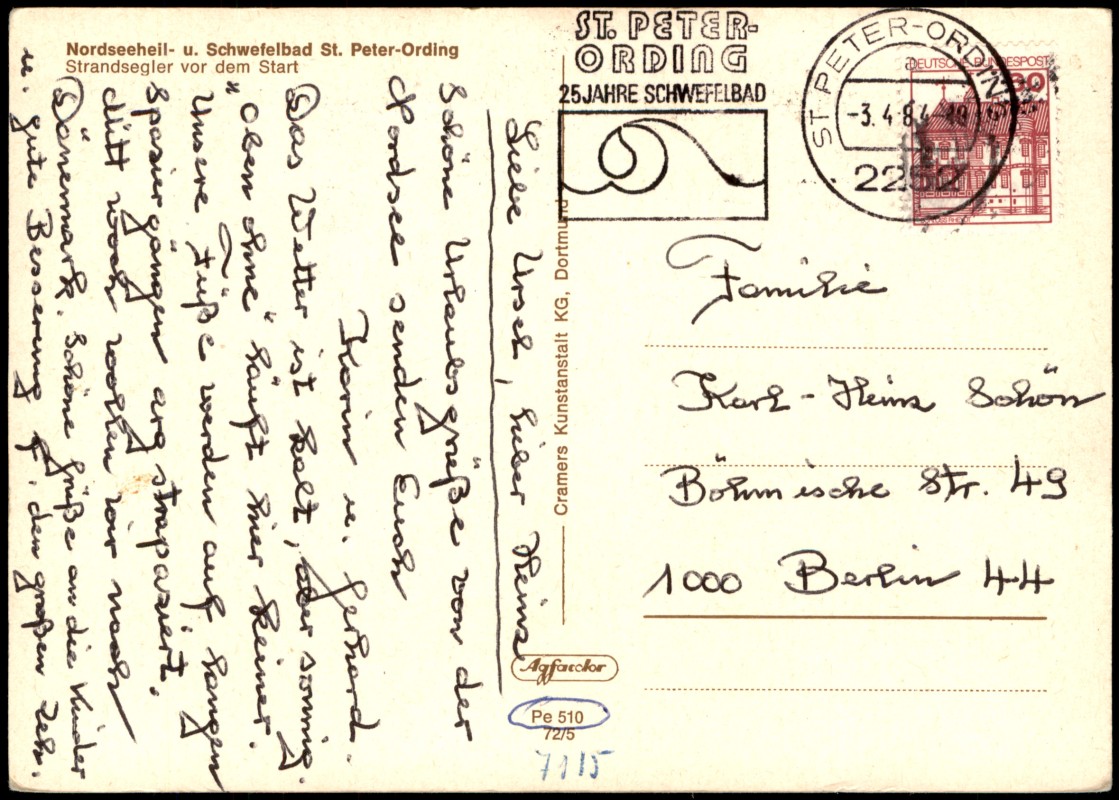 Nordseeheil- u. Schwefelbad St. Peter-Ording
Strandsegler vor dem Start
Liebe Ursel, lieber Heinz
Schöne Urlaubsgrüße von der
Nordsee senden Euch
Karin u. Gerhard.
Das Wetter ist kalt, aber sonnig.
"Oben ohne" läuft hier keiner.
Unsere Füße werden auf langen
Spaziergängen arg strapaziert.
Mittwoch wollen wir nach
Dänemark. Schöne Grüße an die Kinder
u. gute Besserung f. den großen Zeh.
Cramers Kunstanstalt KG, Dortmund
Agfacolor
Pe 510
72/5
7115
ST. PETER-
ORDING
25 JAHRE SCHWEFELBAD
ST. PETER-ORDING
a
-3.4.84-18
2252
DEUTSCHE BUNDESPOST
60
Familie
Karl-Heinz Schön
Böhmische Str. 49
1000 Berlin 44